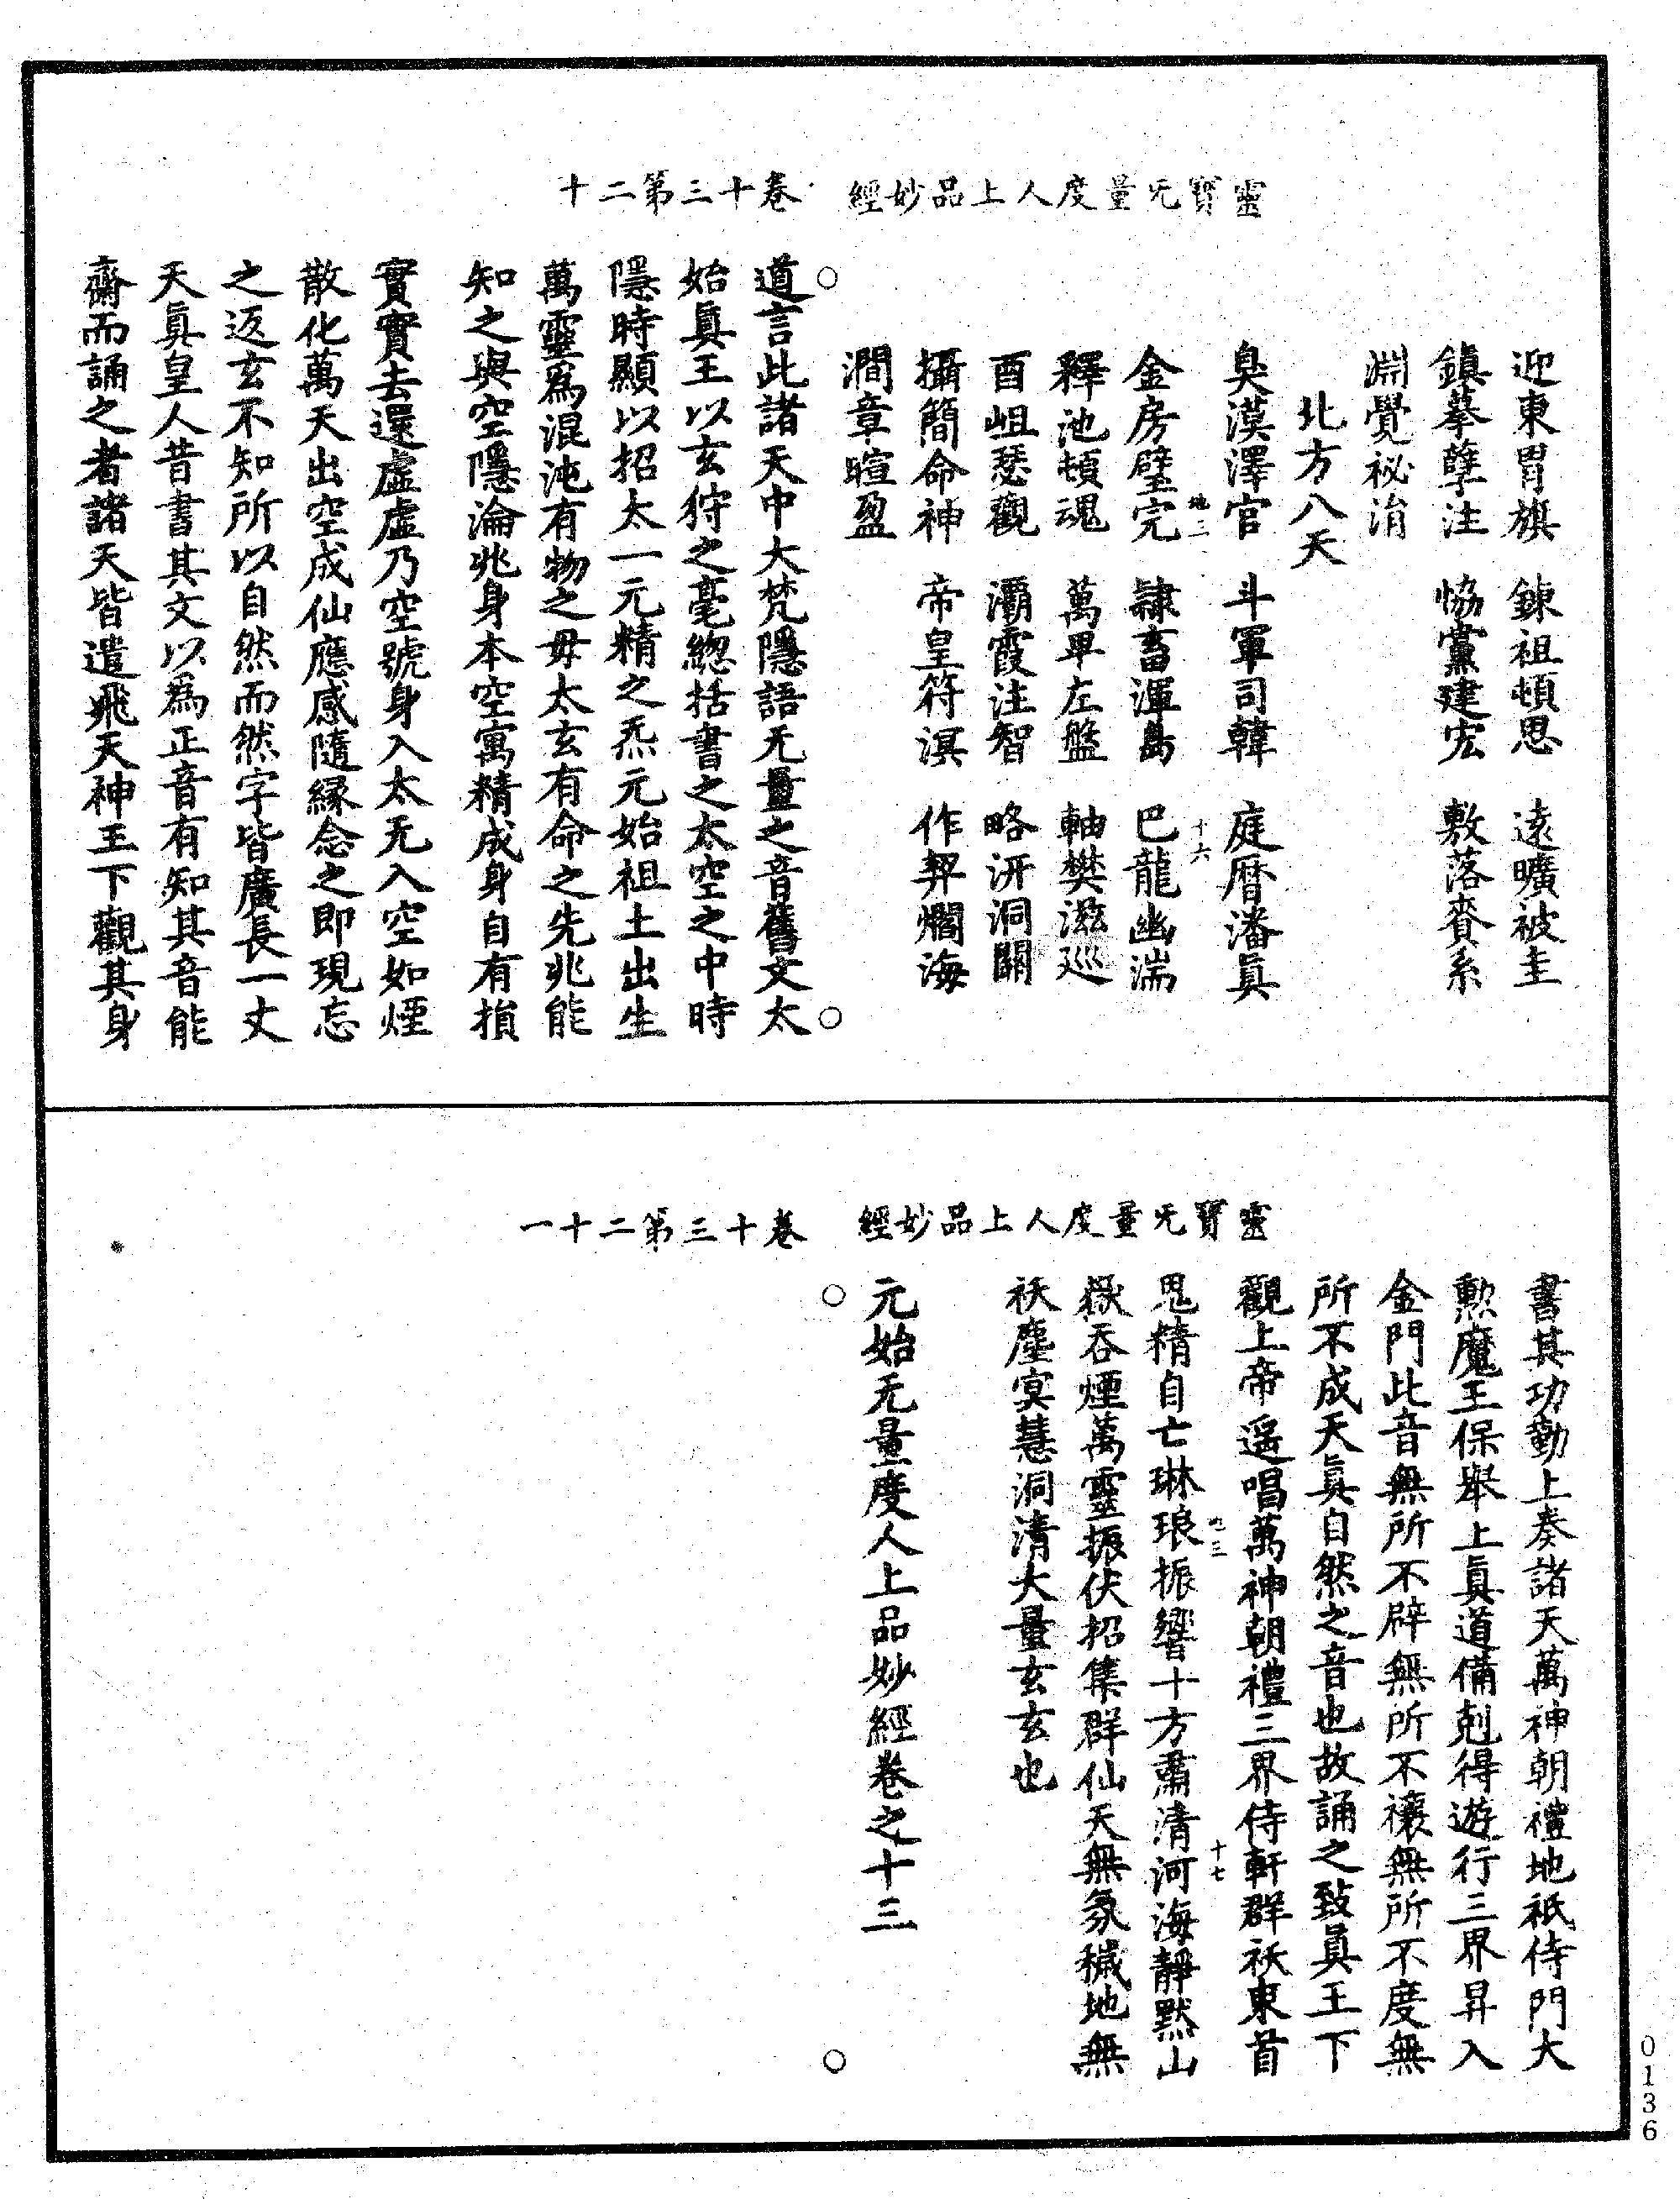 靈寶无量度人上品妙經　卷十三第二十
迎東胃旗　鍊祖頓思　遠曠被圭
鎮摹孽注　恊黨建宏　敷落賚系
淵覺祕涓
北方八天
臭漠澤官　斗軍司韓　庭曆潘眞
地二　十六
金房璧完　隸畜渾島　巴龍幽湍
釋池頓魂　萬畢左盤　軸樊滋巡
酉岨瑟觀　灞霞注智　略汧洞關
攝簡命神　帝皇符溟　作羿爛海
澗章暄盈
道言此諸天中大梵隱語无量之音舊文太
始眞王以玄狩之毫緫括書之太空之中時
隱時顯以招太一元精之炁元始祖土出生
萬靈爲混沌有物之毋太玄有命之先兆能
知之與空隱淪兆身本空寓精成身自有損
實實去還虛虛乃空號身入太无入空如煙
散化萬天出空成仙應感隨緣念之即現忘
之返玄不知所以自然而然字皆廣長一丈
天眞皇人昔書其文以爲正音有知其音能
齋而誦之者諸天皆遣飛天神王下觀其身
靈寶无量度人上品妙經　卷十三第二十一
書其功勤上奏諸天萬神朝禮地祇侍門大
勲魔王保舉上眞道備剋得遊行三界昇入
金門此音無所不辟無所不禳無所不度無
所不成天眞自然之音也故誦之致眞王下
觀上帝遥唱萬神朝禮三界侍軒群祅束首
地三　十七
鬼精自亡琳琅振響十方肅清河海靜默山
嶽吞煙萬靈振伏招集群仙天無氛穢地無
祅塵冥慧洞清大量玄玄也
元始无量度人上品妙經卷之十三
0136